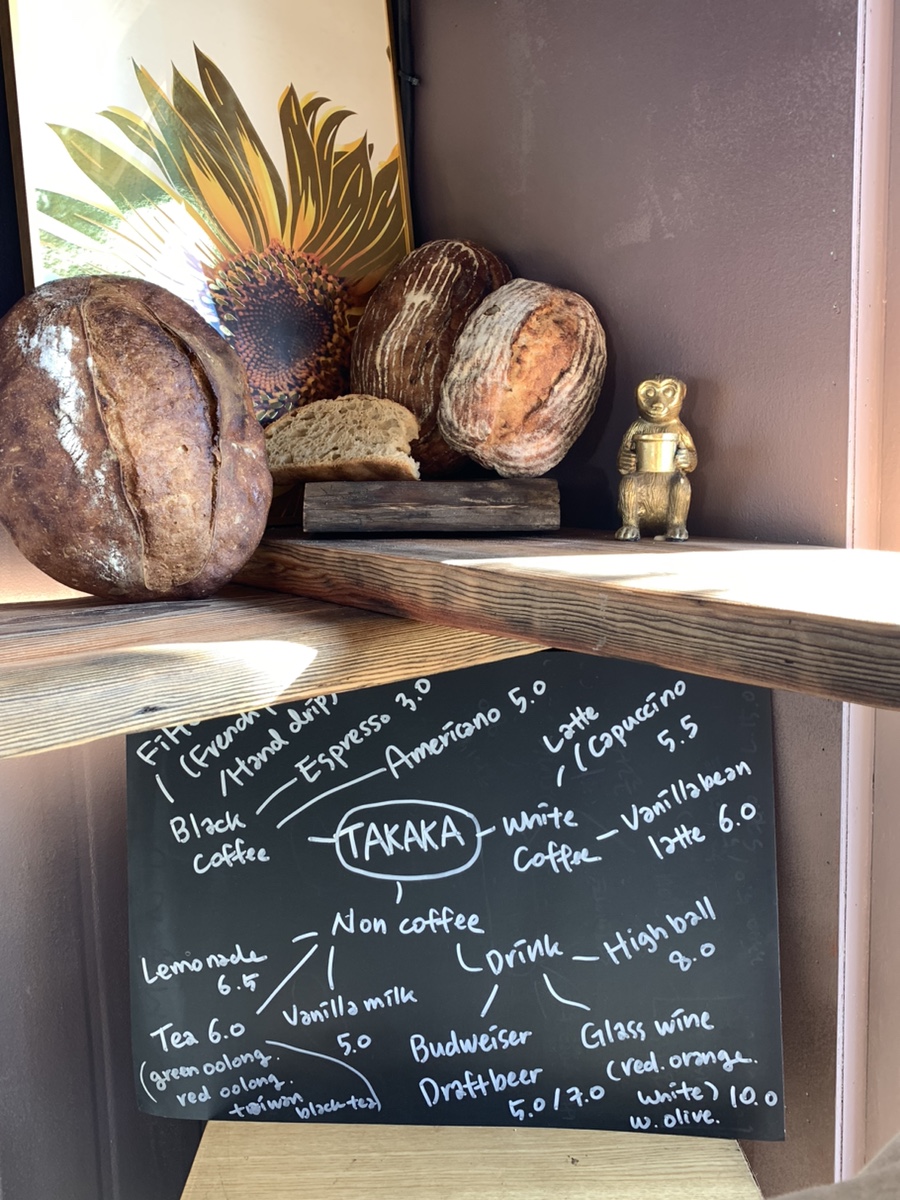 (French
/Hand drip)
Espresso 3.0
Americano 5.0
Black
Coffee
TAKAKA
Latte
(Capuccino
5.5
White
Coffee
Vanillabean
latte 6.0
Non coffee
Lemonade
6.5
Tea 6.0
(green oolong.
red oolong.
taiwan
black tea)
Vanilla milk
5.0
Drink
High ball
8.0
Budweiser
Draft beer
5.0/7.0
Glass wine
(red. orange.
white) 10.0
w. olive.